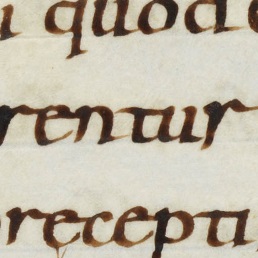 i quod
rentur
recepti